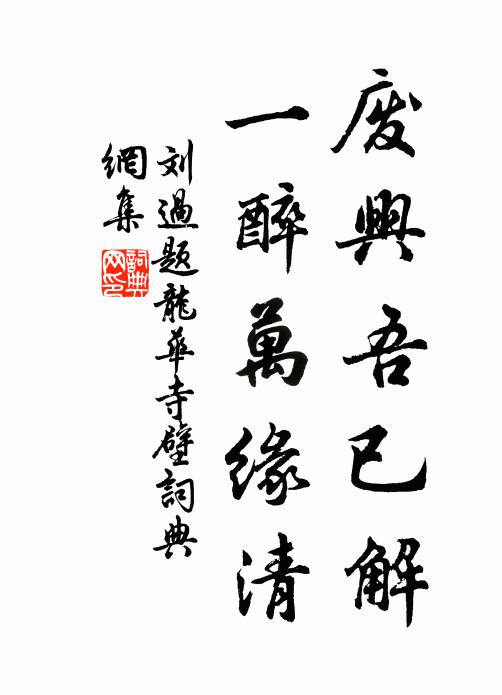 廢興吾已解
一醉萬緣清
刘過題龍華寺壁詞典
網集
詞典
网印